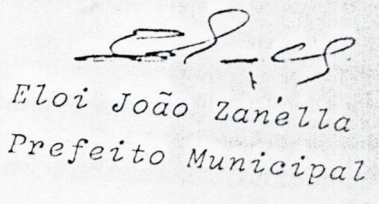 Eloi João Zanella
Prefeito Municipal